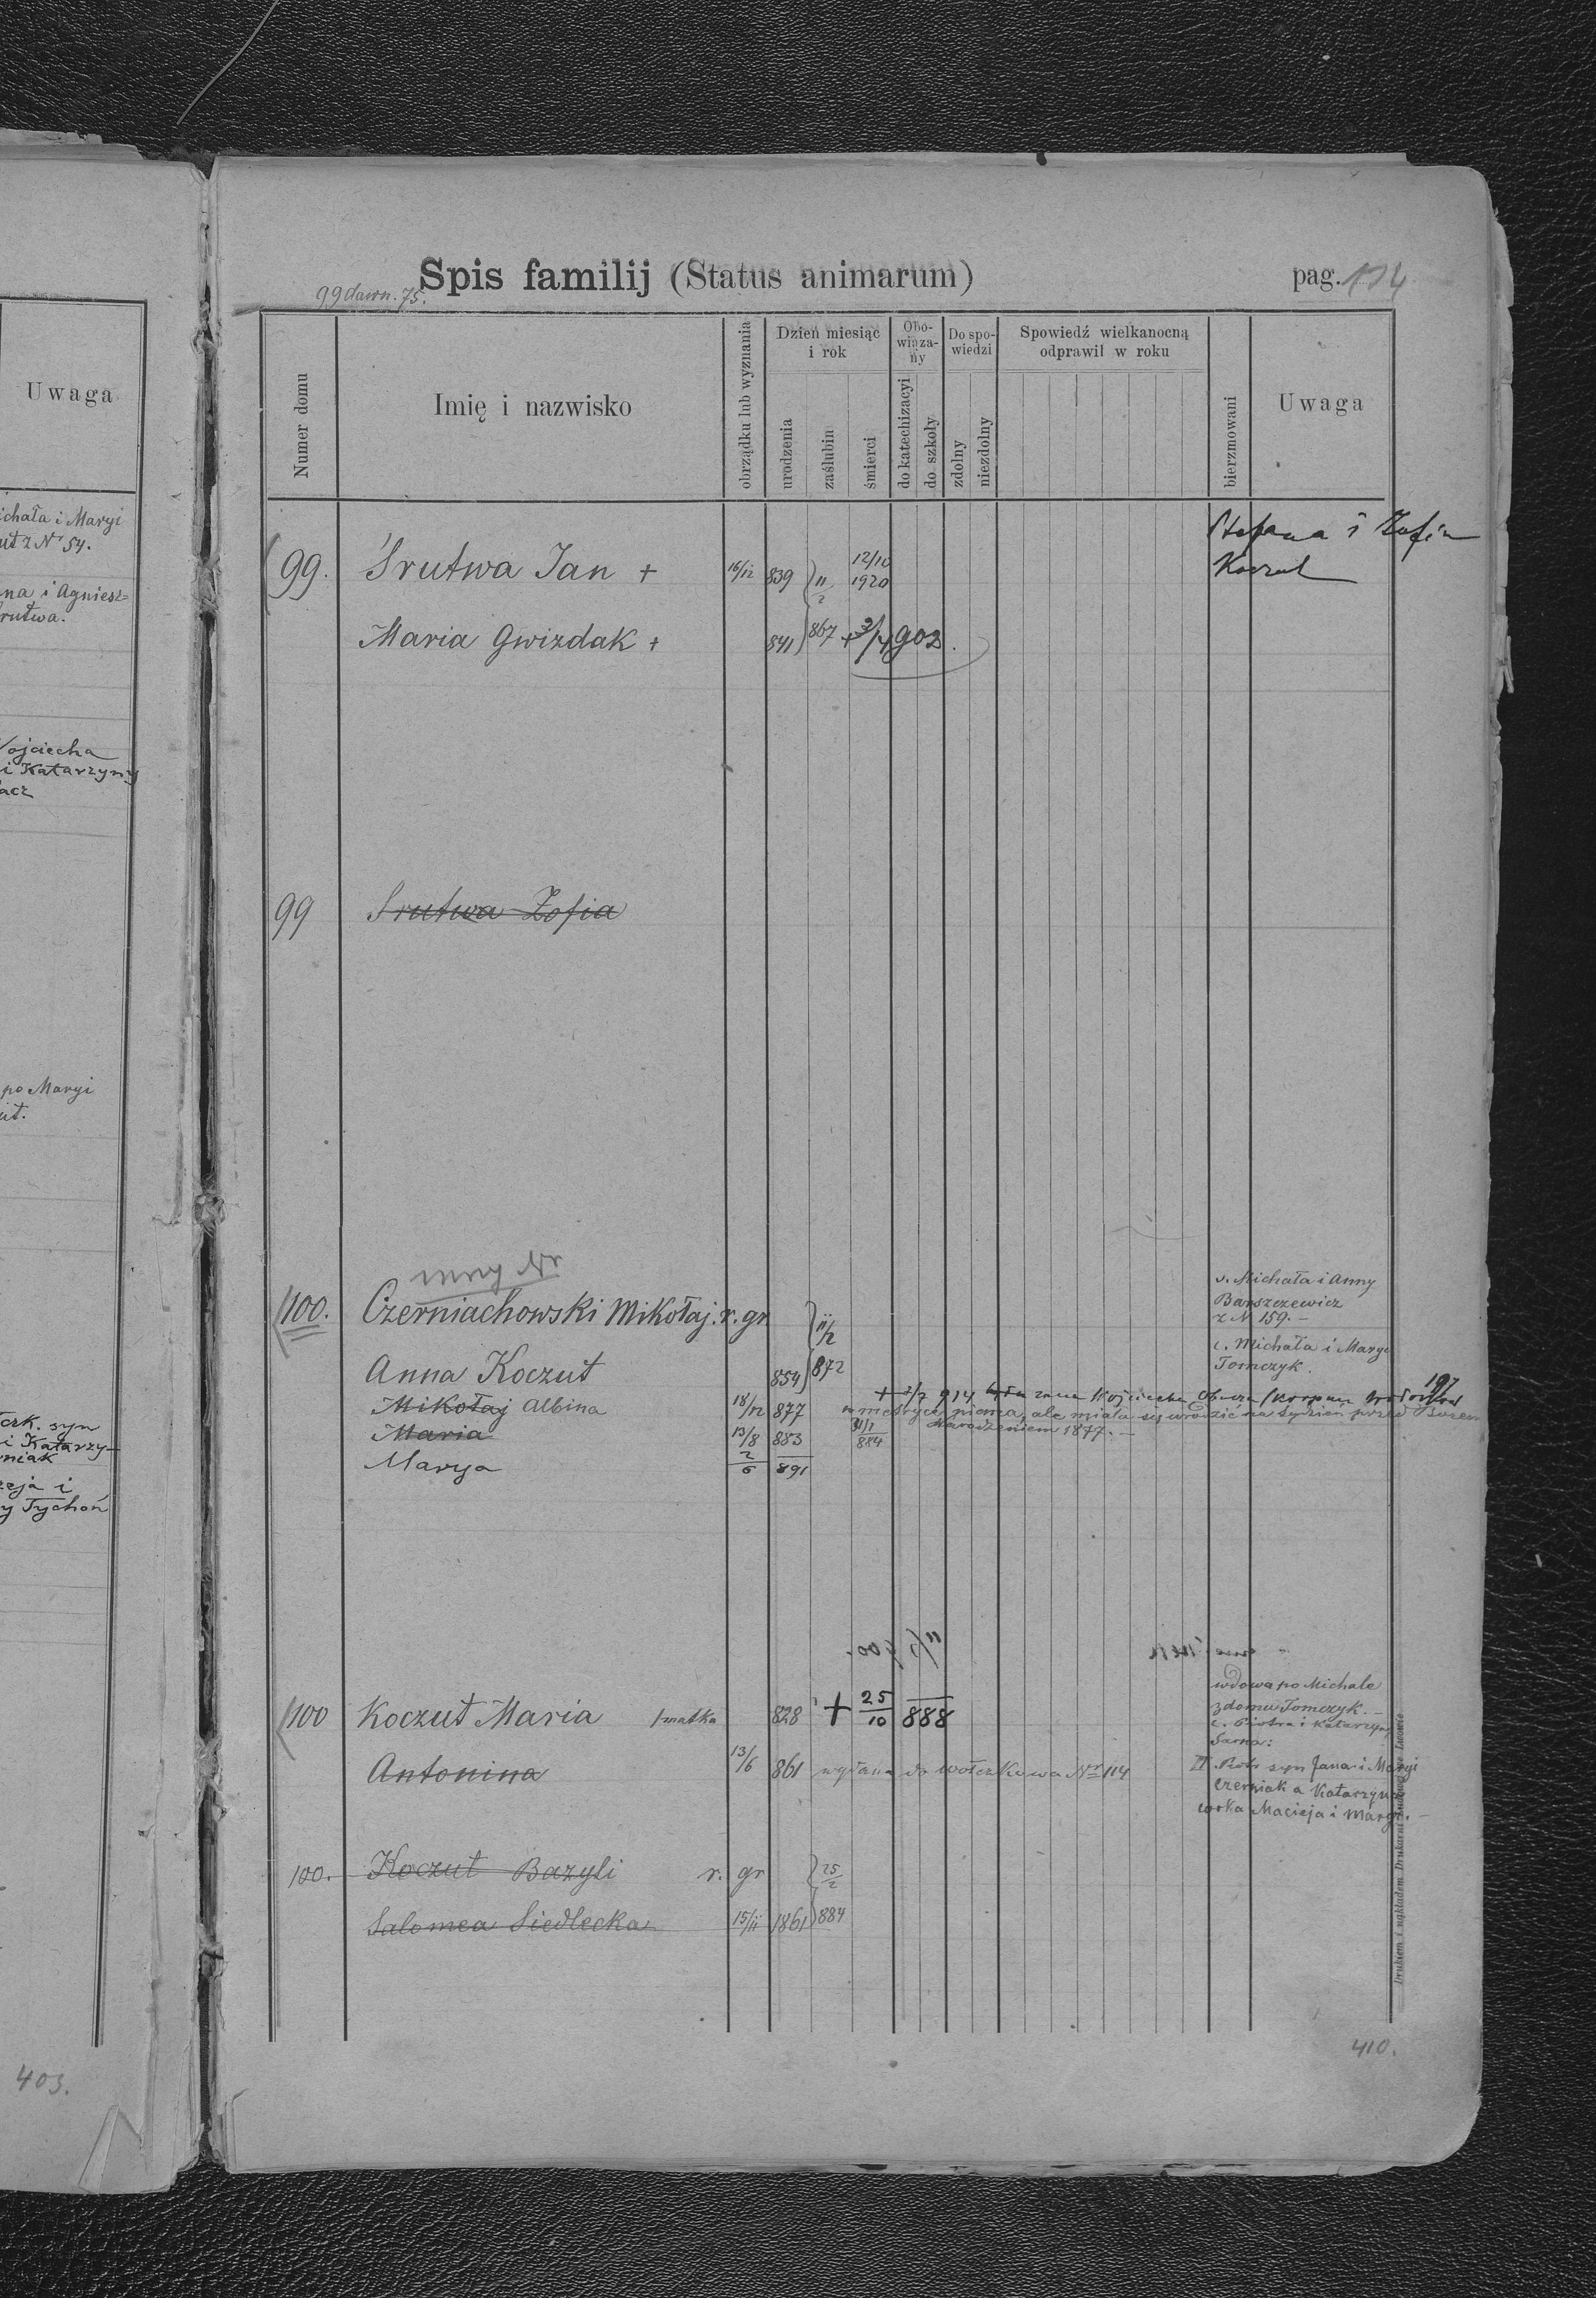 Spis familij (Status animarum)
pag. 114
99 dawn. 75.
Numer domu
Imię i nazwisko
obrządku lub wyznania
Dzień miesiąc i rok
urodzenia
zaślubin
śmierci
Obo-wiąza-ny
do katechizacyi
do szkoły
Do spo-wiedzi
zdolny
niezdolny
Spowiedź wielkanocną odprawił w roku
bierzmowani
Uwaga
99. Śrutwa Jan + 16/12 839 11/2 12/10 1920 Stefana i Zofii
Koczut
Maria Gwizdak + 841 867 + 3/4 902.
99 Srutwa Zofia
inny Nr
100. Czerniachowski Mikołaj. r. gr 11/2 s. Michała i Anny
Barszczewicz
z N 159. –
Anna Koczut 854 872 c. Michała i Maryi
Tomczyk.
Mikołaj Albina 18/12 877 + 7/7 914 żona Wojciecha
w metryce niema, ale miała się urodzić na tydzień przed Bożem
Narodzeniem 1877. –
197
Maria 13/8 883 31/1 884
Marya 2/6 891
wdowa po Michale
100 Koczut Maria matka 828 + 25/10 888 z domu Tomczyk. –
c. Piotra i Katarzyny
Sarna:
Antonina 13/6 861 wydana do Wołczkowa Nr 114 II Piotr syn Jana i Maryi
Czerniak a Katarzyna
córka Macieja i Maryi. –
100. Koczut Bazyli r. gr 25/2
Salomea Siedlecka 15/11 1861 884
Drukiem i nakładem Drukarni Ludowej we Lwowie
410.
Uwaga
ichała i Maryi
ut z Nr 54.
na i Agniesz=
rutwa.
Wojciecha
i Katarzyny
acz
po Maryi
ut.
czk. syn
i Katarzy–
niak
eja i
y Tychoń
403.